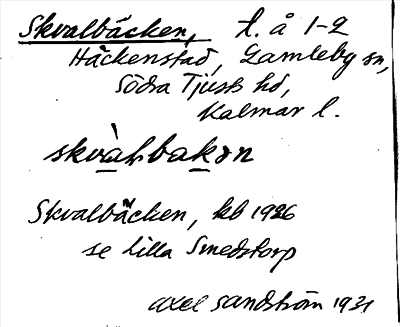 Skvalbäcken, t. å 1-2
Häckenstad, Gamleby sn,
Södra Tjusts hd,
Kalmar l.
Skvalbäcken, kb 1926
se Lilla Smedstorp
Axel Sandström 1931